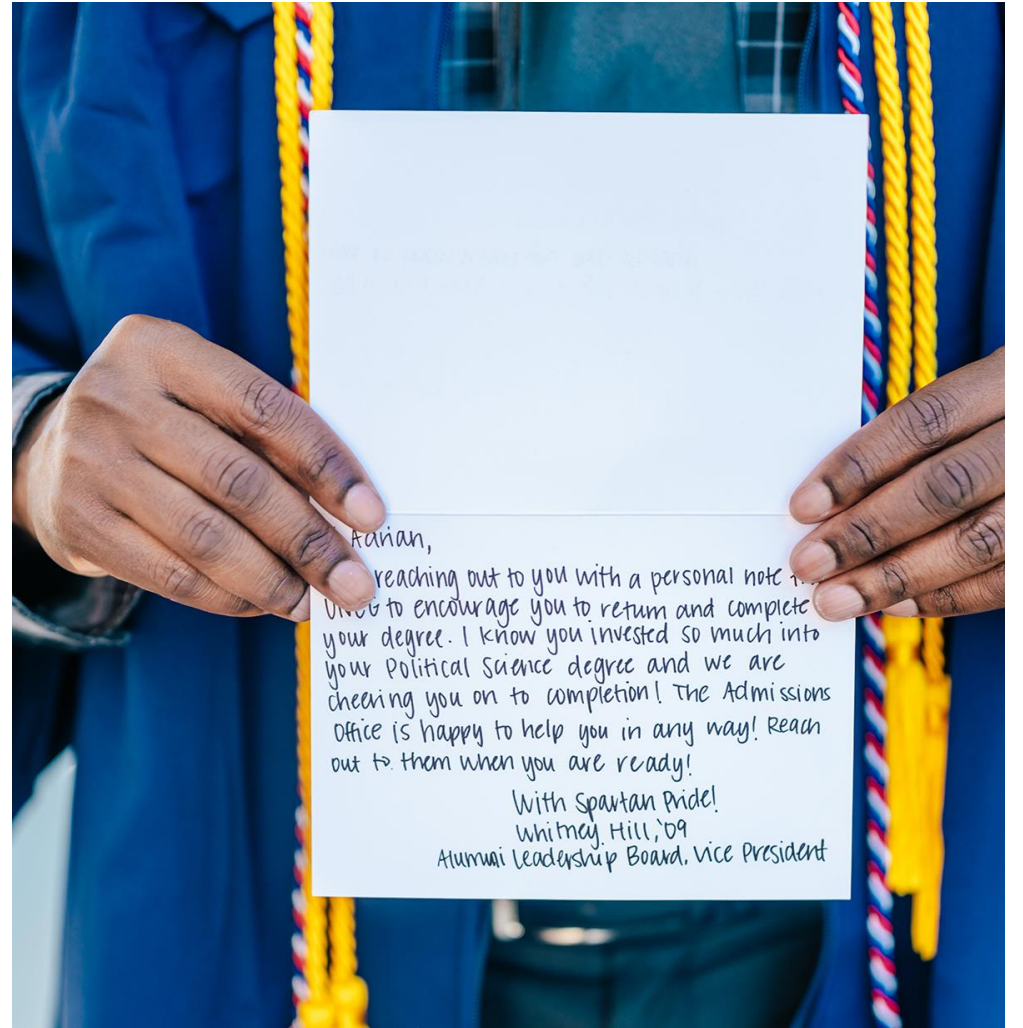 Adrian,
reaching out to you with a personal note
UNCG to encourage you to return and complete
your degree. I know you invested so much into
your Political Science degree and we are
cheering you on to completion! The Admissions
Office is happy to help you in any way! Reach
out to them when you are ready!
With Spartan Pride!
Whitney Hill, '09
Alumni Leadership Board, Vice President